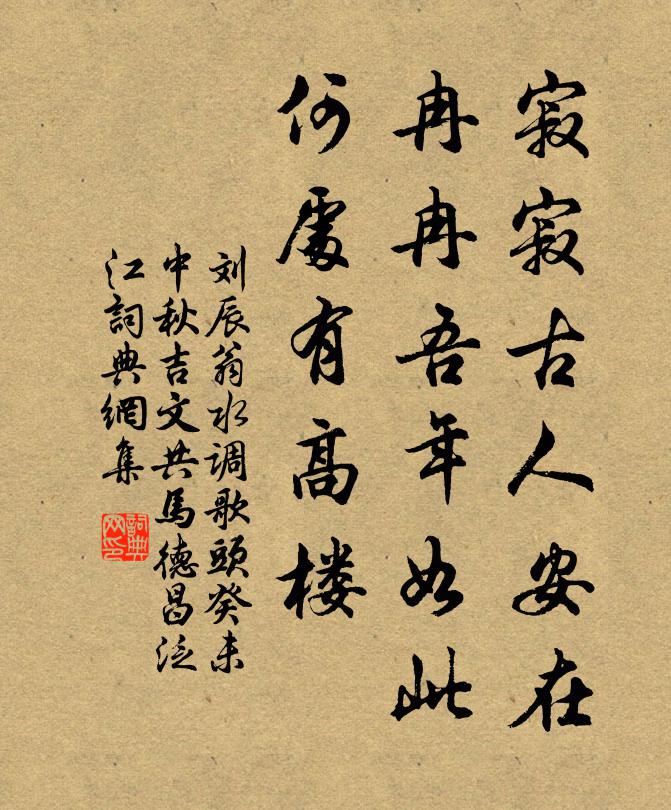 寂寂古人安在
冉冉吾年如此
何處有高楼
刘辰翁水调歌頭癸未
中秋吉文共馬德昌泛
江詞典網集
詞典
网印